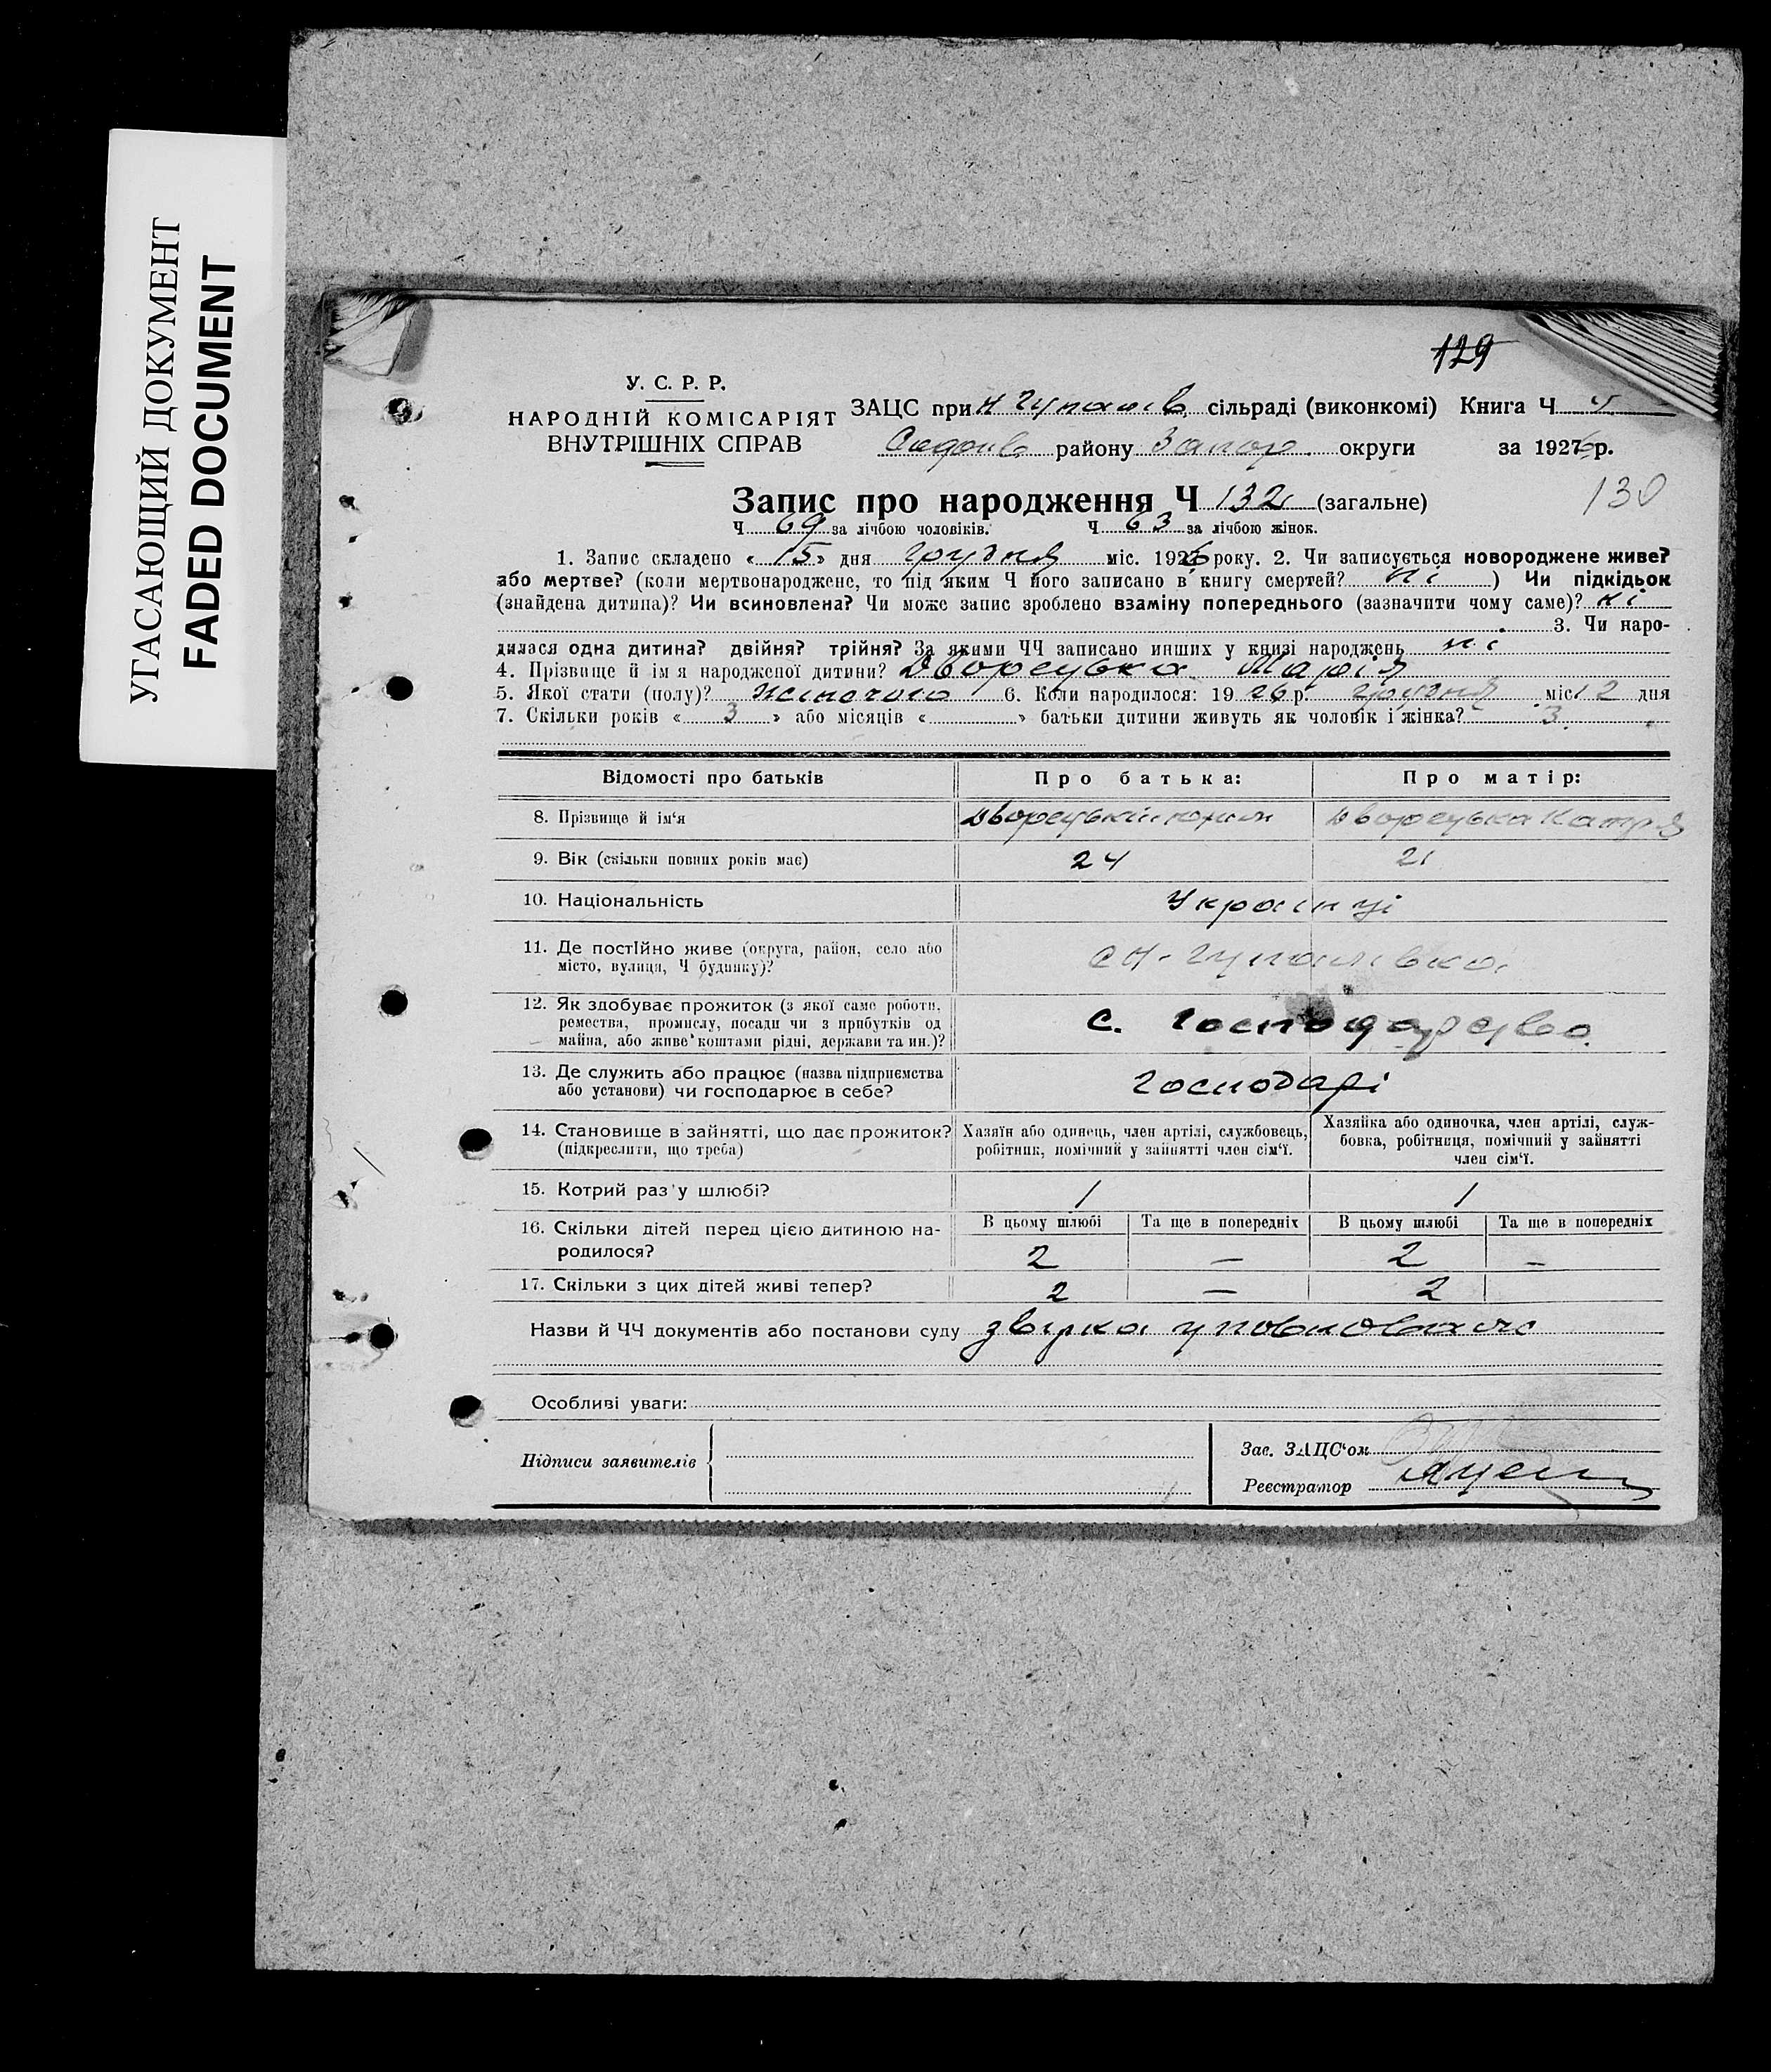 УГАСАЮЩИЙ ДОКУМЕНТ
FADED DOCUMENT
129
У. С. Р. Р.
НАРОДНІЙ КОМІСАРІЯТ
ВНУТРІШНІХ СПРАВ
ЗАЦС при сільраді (виконкомі) Книга Ч 4
району Запор. округи за 1926 р.
130
Запис про народження Ч 132 (загальне)
Ч 69 за лічбою чоловіків. Ч 63 за лічбою жінок.
1. Запис складено « 15 » дня грудня міс. 1926 року. 2. Чи записується новороджене живе?
або мертве? (коли мертвонароджене, то під яким Ч його записано в книгу смертей? ні ) Чи підкідьок
(знайдена дитина)? Чи всиновлена? Чи може запис зроблено взаміну попереднього (зазначити чому саме)? ні
3. Чи наро-
дилася одна дитина? двійня? трійня? За якими ЧЧ записано инших у книзі народжень ні
4. Прізвище й ім'я народженої дитини? Дворецька Марія
5. Якої стати (полу)? жіночого 6. Коли народилося: 1926 р. грудня міс. 12 дня
7. Скільки років « 3 » або місяців « » батьки дитини живуть як чоловік і жінка? 3
Відомості про батьків Про батька: Про матір:
8. Прізвище й ім'я Дворецький Дворецька Катря
9. Вік (скільки повних років має) 24 21
10. Національність Українці
11. Де постійно живе (округа, район, село або
місто, вулиця, Ч будинку)?
12. Як здобуває прожиток (з якої саме роботи,
ремества, промислу, посади чи з прибутків од
майна, або живе коштами рідні, держави та ин.)?
с. господарство
13. Де служить або працює (назва підприємства
або установи) чи господарює в себе?
господарі
14. Становище в зайнятті, що дає прожиток?
(підкреслити, що треба)
Хазяїн або одинець, член артілі, службовець,
робітник, помічний у зайнятті член сім'ї.
Хазяйка або одиночка, член артілі, служ-
бовка, робітниця, помічний у зайнятті
член сім'ї.
15. Котрий раз у шлюбі? 1 1
16. Скільки дітей перед цією дитиною на-
родилося?
В цьому шлюбі Та ще в попередніх В цьому шлюбі Та ще в попередніх
2 — 2 —
17. Скільки з цих дітей живі тепер? 2 — 2
Назви й ЧЧ документів або постанови суду
Особливі уваги:
Підписи заявителів
Зав. ЗАЦС'ом
Реєстратор